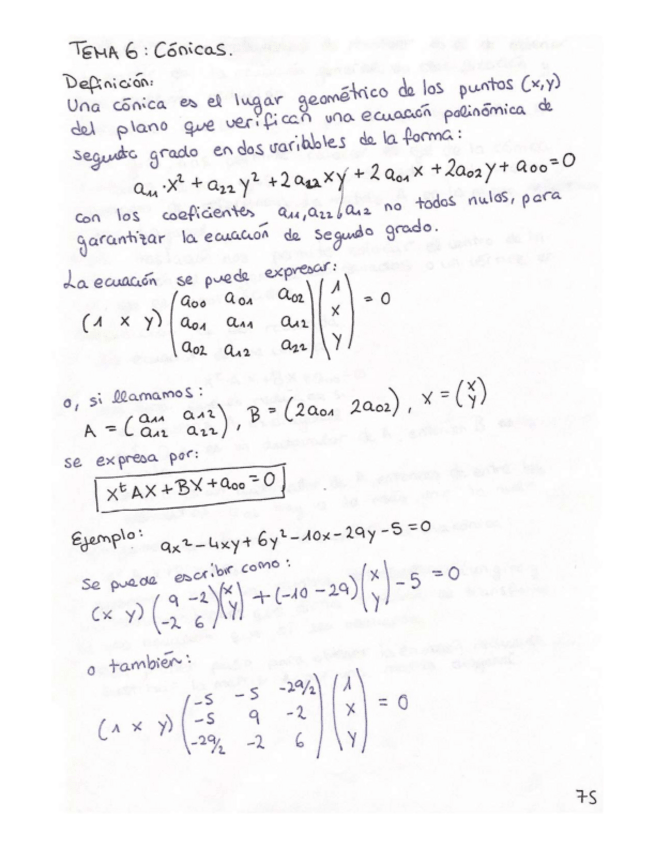 TEMA 6: Cónicas.
Definición:
Una cónica es el lugar geométrico de los puntos (x,y)
del plano que verifican una ecuación polinómica de
segundo grado en dos variables de la forma:
a₁₁·x² + a₂₂y² + 2a₁₂xy + 2a₀₁x + 2a₀₂y + a₀₀ = 0
con los coeficientes a₁₁, a₂₂, a₁₂ no todos nulos, para
garantizar la ecuación de segundo grado.
La ecuación se puede expresar:
(1 x y) (a₀₀ a₀₁ a₀₂ (1
a₀₁ a₁₁ a₁₂ x = 0
a₀₂ a₁₂ a₂₂) y)
o, si llamamos:
A = (a₁₁ a₁₂ , B = (2a₀₁ 2a₀₂), X = (x
a₁₂ a₂₂) y)
se expresa por:
XᵗAX + BX + a₀₀ = 0
Ejemplo: 9x² - 4xy + 6y² - 10x - 29y - 5 = 0
Se puede escribir como:
(x y) (9 -2 (x + (-10 -29) (x - 5 = 0
-2 6) y) y)
o también:
(1 x y) (-5 -5 -29/2 (1
-5 9 -2 x = 0
-29/2 -2 6) y)
75